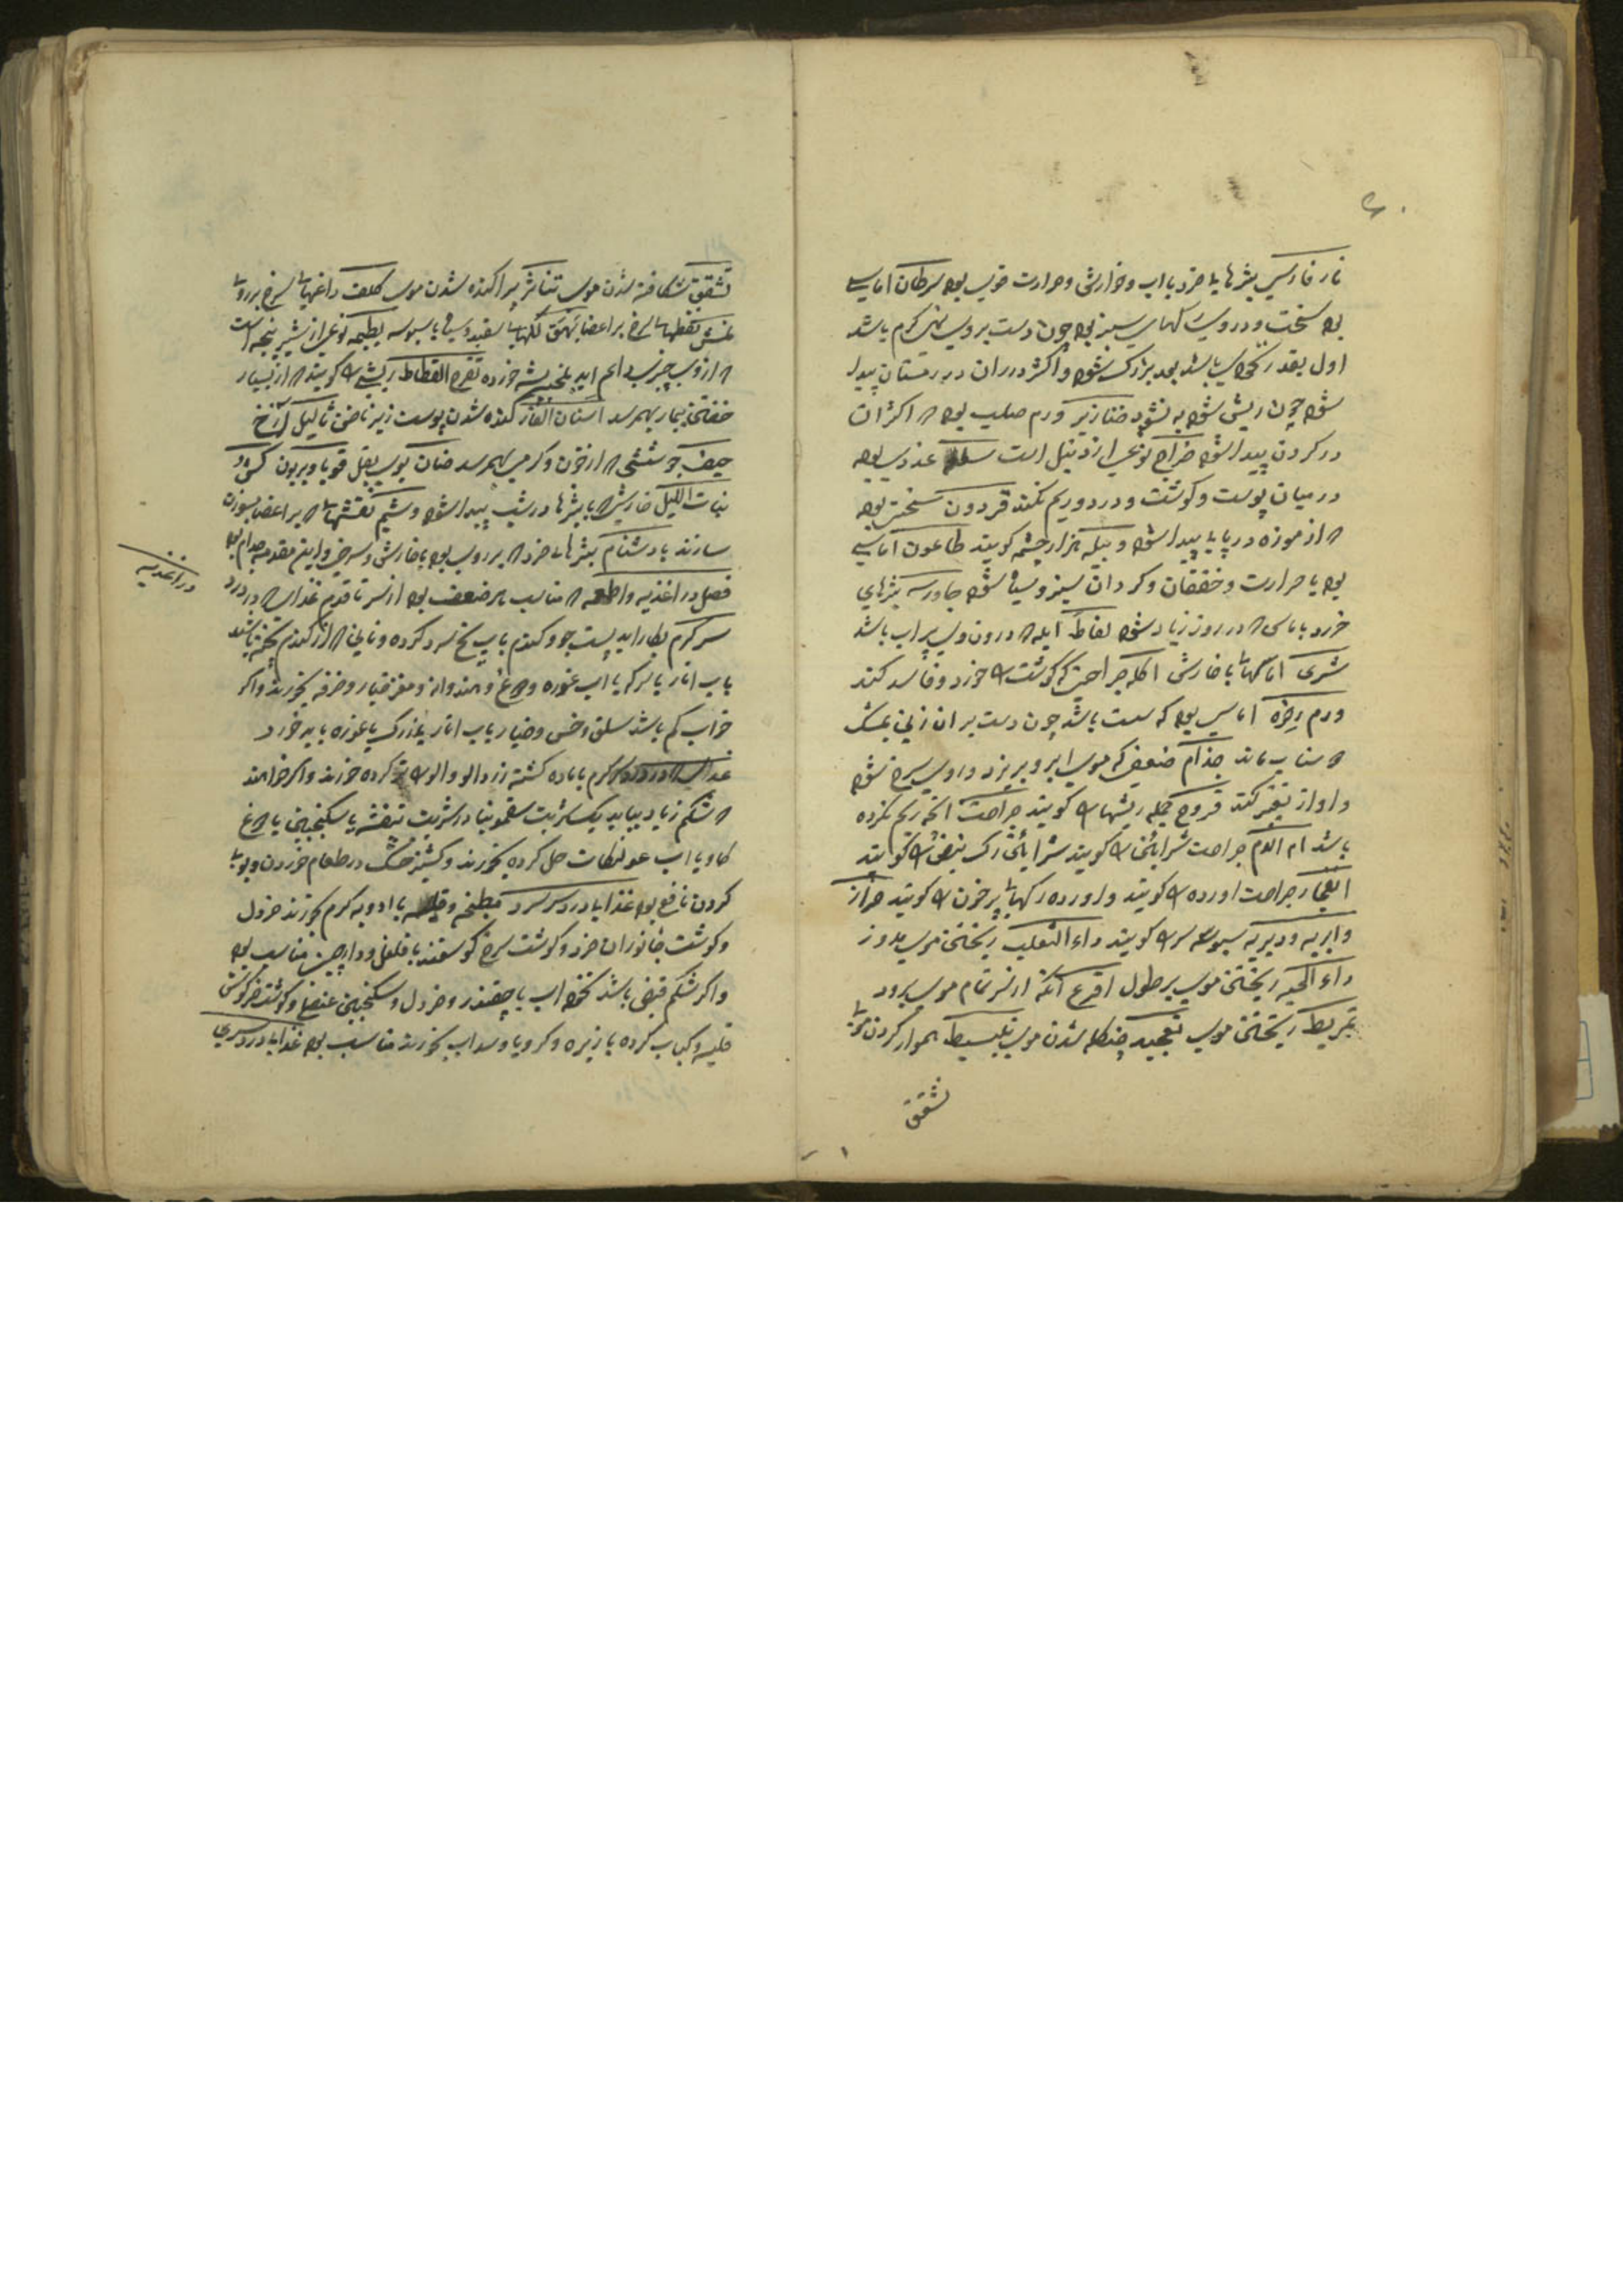 نار فارسی بثرها باء خرد با اب و خوارش و حرارت قوی بود سرطان اماسی
بود سخت و در وی رکهای سبز بود چون دست بر وی نهی کرم باشد
اول بقدر باشد بعد بزرک شود و اکثر در ران در زمستان پیدا
شود چون ریش شود به نشود خنازیر ورم صلب بود که اکثر ان
در کردن پیدا شود خراج نوعی از دنبل است سلعه غددی بود
در میان پوست و کوشت و درد و ریم نکند قردون سختی بود
که از موزه در پای پیدا شود و بیله هزار چشمه کویند طاعون اماسی
بود با حرارت و خفقان و کرد ان سبز و سیاه شود جاورسه بثرهای
خرد با که در روز زیاد شود نفاطه ابله که درون وی پر اب باشد
شری اماسهاء با خارش اکله جراحتی که کوشت را خورد و فاسد کند
ورم رخوه اماسی بود که سست باشد چون دست بر ان زنی
که بماند جذام ضعیفی که موی ابرو بریزد و روی سرخ شود
و اواز تغیر کند قروح جمله ریشها را کویند جراحت انچه ریم نکرده
باشد ام الدم جراحت شرائین را کویند شرائین رک نبض را کویند
انفجار جراحت اورده را کویند و اورده رکهاء پر خون را کویند حزاز
و ابریه سبوسه سر را کویند داء الثعلب ریختن موی مدور
داء الحیه ریختن موی بر طول اقرع آنکه از سر تمام موی برود
تمریط ریختن موی تجعید شدن موی تبسیط هموار کردن موی
تشقق
تشقق شکافته شدن موی تناثر پراکنده شدن موی کلف داغهاء سرخ بر روی
نمش نقطهاء سرخ بر اعضا بهق لکهاء سفید و سیاه با سبوسه بطیمه نوعی از شیر پنجه است
که از وی چیزی دایم اید بلخیه پشه خورده تقرح القطاط ریشی را کویند که از بسیار
خفتن بیمار بهم رسد اسنان الفار کنده شدن پوست زیر ناخن ثالیل آزخ
حصف جوششی که از خون و کرمی بهم رسد صنان بوی بغل قوبا
بنات اللیل خارش که با بثرها در شب پیدا شود وشم نقشهاء که بر اعضا بسوزن
سازند بادشنام بثرهاء خرد که بر روی بود با خارش و سرخی و این مقدمه جذام بود
فصل در اغذیه و اطعمه که مناسب هر ضعف بود از سر تا قدم غذای که در درد
سر کرم بکار اید پست جو و کندم باب یخ سرد کرده و نانی که از کندم پخته باشند
باب انار یا سرکه یا اب غوره و دوغ و هندوانه و مغز خیار و خرفه بخورند و اکر
خواب کم باشد سلق و خس و خیار باب انار یا زرک یا غوره باید خورد
غذای که در درد سر کرم با ماده کشته زردالو والو را تر کرده خورند و اکر خواهند
که شکم زیاد بیاید یک شربت سقمونیا در شربت بنفشه یا سکنجبین یا دوغ
کاو یا اب حل کرده بخورند و کشنیز خشک در طعام خوردن و بوی
کردن نافع بود غذاها در درد سر سرد مطبخه و قلیه با ادویه کرم بخورند خردل
و کوشت جانوران خرد و کوشت سرخ کوسفند با فلفل و دارچین مناسب بود
و اکر شکم قبض باشد نخود اب با چقندر و خردل و سکنجبین عنصلی و کوشت خرکوش
قلیه و کباب کرده با زیره و کرویا و سداب بخورند مناسب بود غذاها در درد سری
در اغذیه